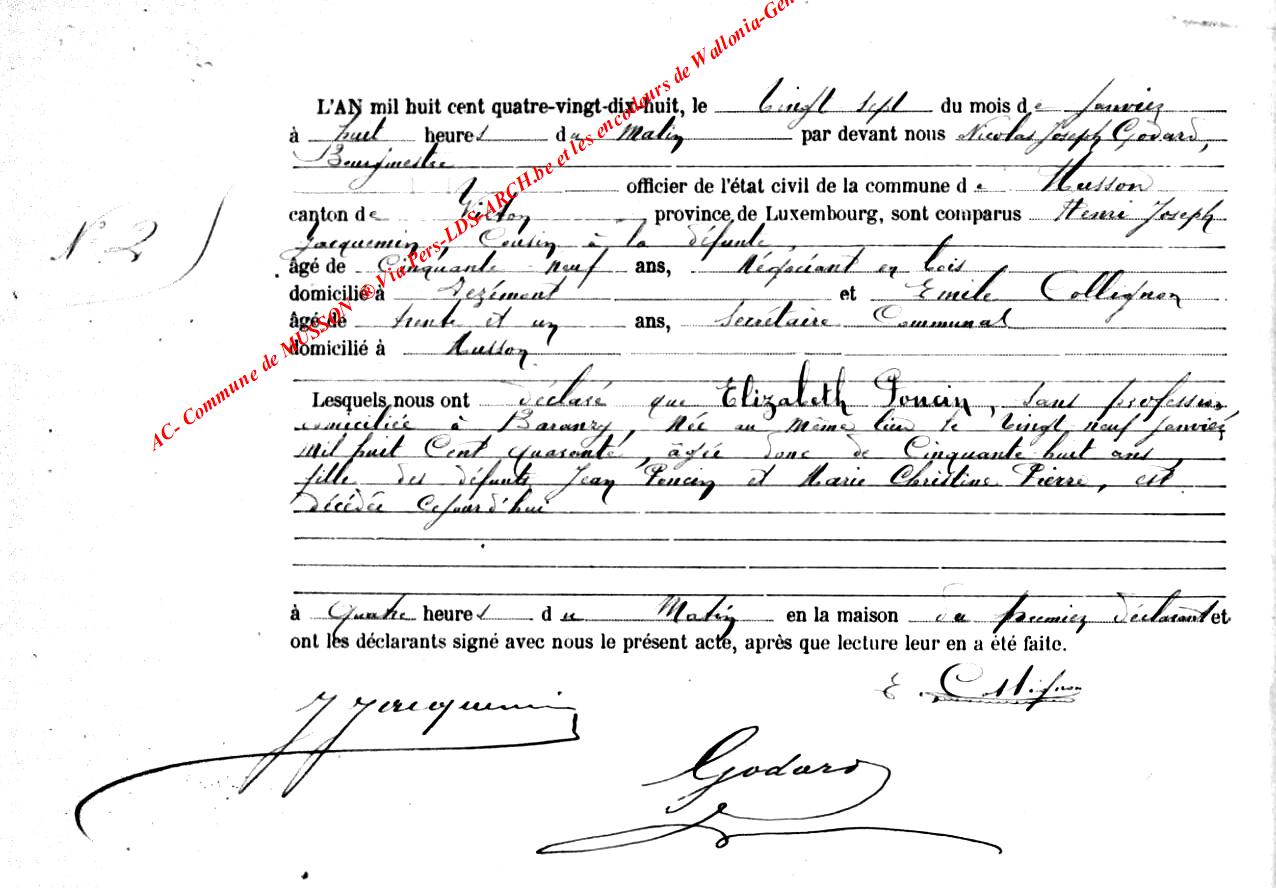 L'AN mil huit cent quatre-vingt-dix-huit, le vingt sept du mois de Janvier
à huit heures du Matin par devant nous Nicolas Joseph Godard,
Bourgmestre
officier de l'état civil de la commune de Musson
canton de Virton province de Luxembourg, sont comparus Henri Joseph
Jacquemin, Cousin à la défunte,
âgé de Cinquante neuf ans, Négociant en bois
domicilié à et Emile Collignon
âgé de trente et un ans, Secrétaire Communal
domicilié à Musson
N° 2
Lesquels nous ont déclaré que Elizabeth Poncin, sans profession
domiciliée à Baranzy, Née au même lieu le vingt neuf Janvier
Mil huit Cent quarante, âgée donc de Cinquante huit ans,
fille des défunts Jean Poncin et Marie Christine Pierre, est
décédée cejourd'hui
à quatre heures du Matin en la maison du premier déclarant et
ont les déclarants signé avec nous le présent acte, après que lecture leur en a été faite.
E. Collignon
J Jacquemin
Godard
AC- Commune de MUSSON ® Via Pers-LDS-ARCH.be et les encodeurs de Wallonia-Gen